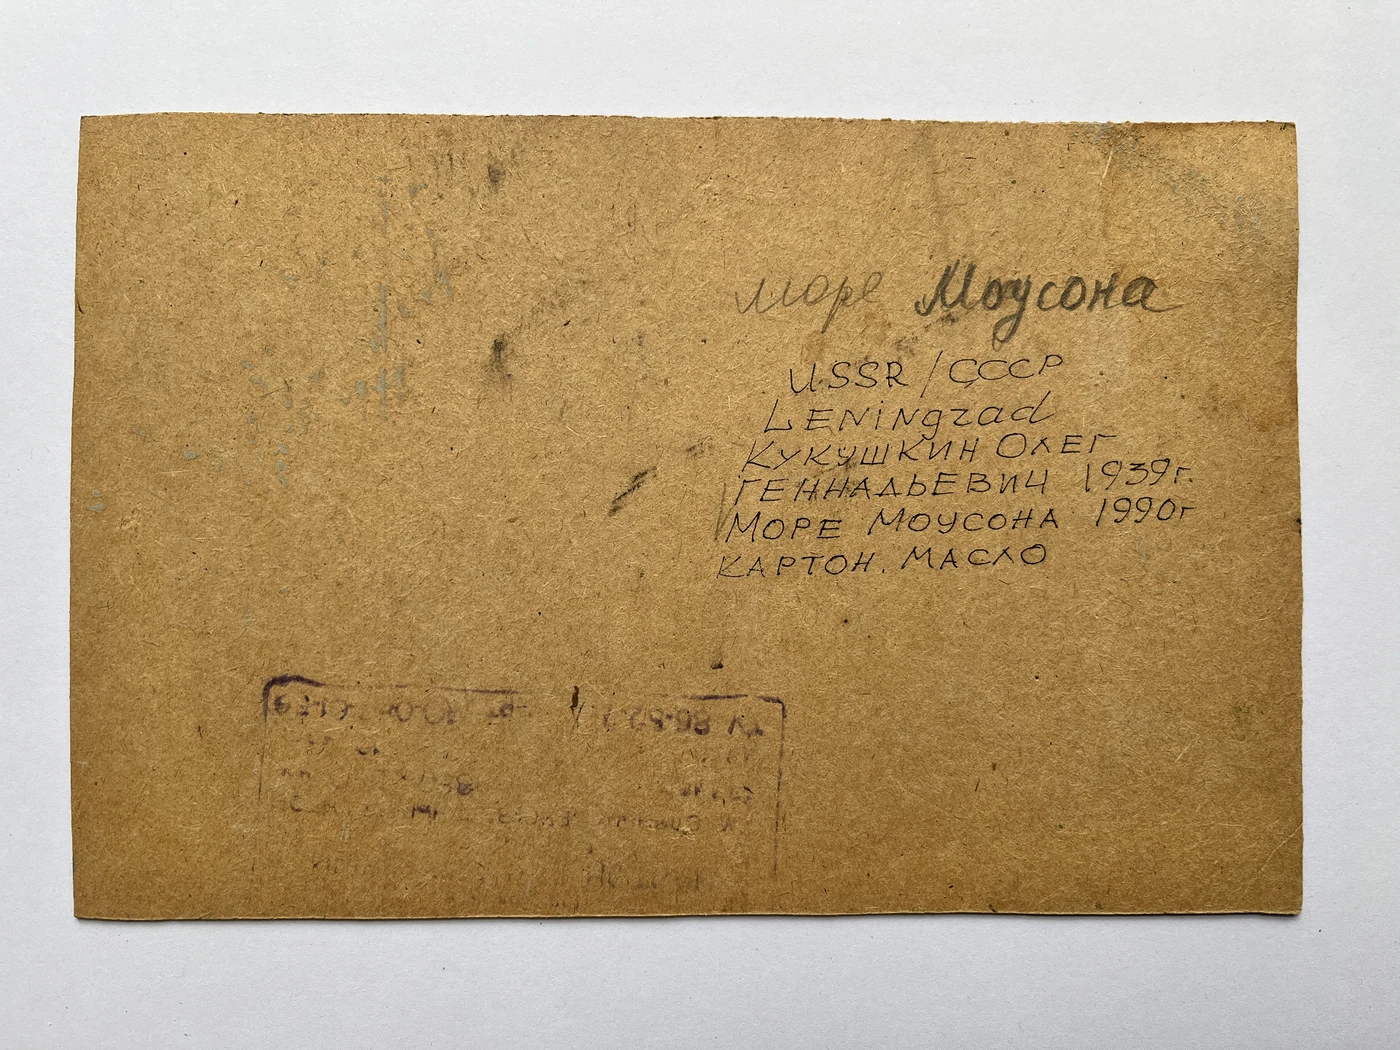 море Моусона
USSR/СССР
LENiNgrad
КУКУШКИН ОЛЕГ
ГЕННАДЬЕВИЧ 1939г.
МОРЕ МОУСОНА 1990г
КАРТОН. МАСЛО